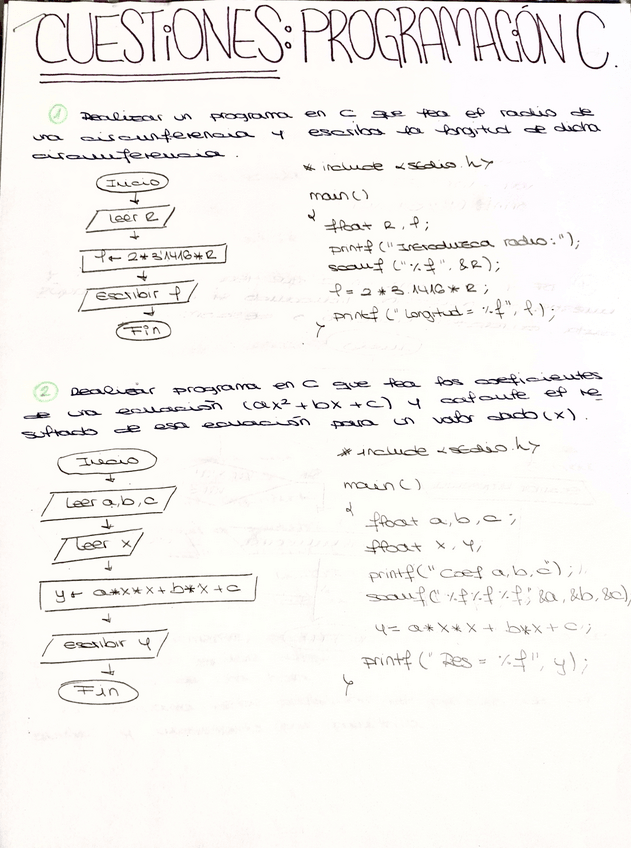 CUESTIONES: PROGRAMACIÓN C.
1 Realizar un programa en C que lea el radio de
una circunferencia y escriba la longitud de dicha
circunferencia.
Inicio
Leer R
l ← 2*3.1416*R
Escribir l
Fin
# include <stdio.h>
main()
{
float R, l;
printf("Introduzca radio:");
scanf ("%f", &R);
l = 2*3.1416*R;
printf ("Longitud = %f", l);
}
2 Realizar programa en C que lea los coeficientes
de una ecuación (ax²+bx+c) y calcule el re
sultado de esa ecuación para un valor dado (x).
Inicio
Leer a,b,c
Leer x
y ← a*x*x+b*x+c
escribir y
Fin
# include <stdio.h>
main()
{
float a,b,c;
float x, y;
printf("Coef a,b,c");
scanf("%f%f%f", &a, &b, &c);
y= a*x*x+ b*x+c;
printf("Res = %f", y);
}